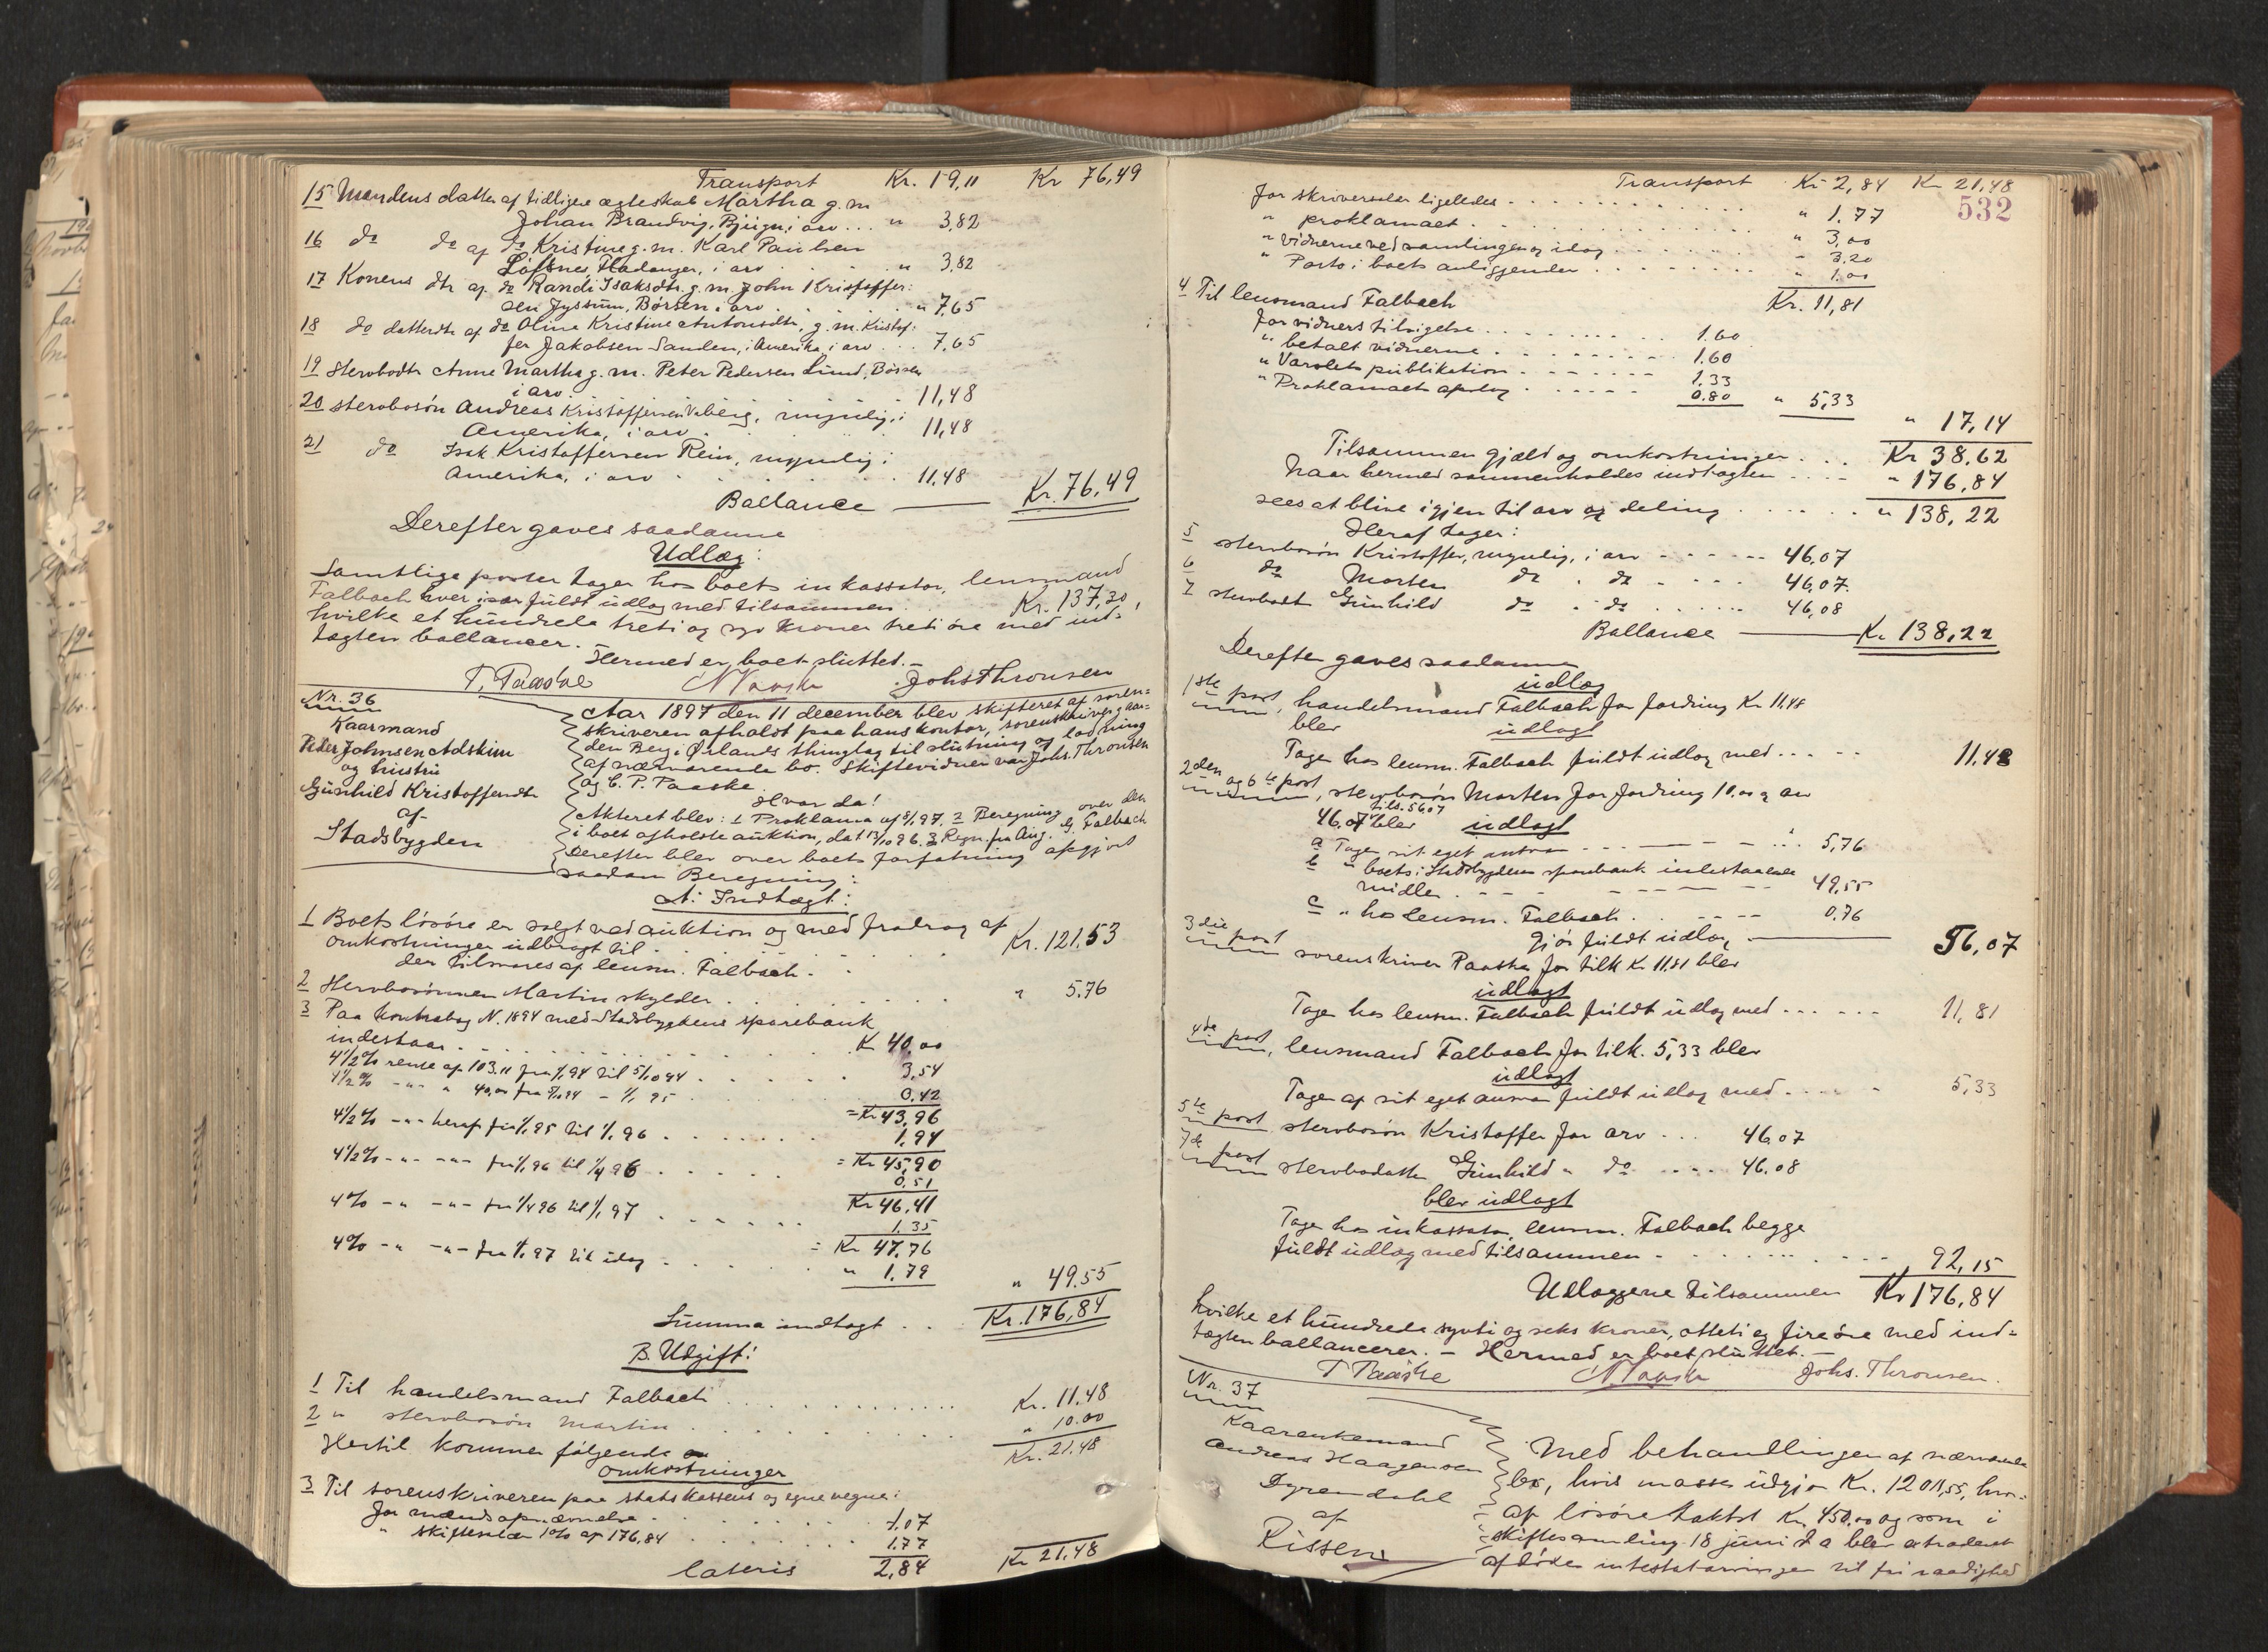 Transport Kr. 19,11 Kr 76,49
15 Mandens datter af tidligere ægteskab Martha g. m.
Johan Brandvig, Bjugn, i arv ... " 3,82
16 do do af do Kristine g. m. Karl Paulsen
Løfsnes, Fladanger, i arv . . . " 3,82
17 Konens dtr af do Randi Isaksdtr. g. m. John Kristoffer:
sen Jyssum, Børsen i arv . . . " 7,65
18 do datterdtr af do Oline Kristine Antonsdtr, g. m. Kristof:
fer Jakobsen Sanden, i Amerika, i arv ... 7,65
19 Stervbodtr Anne Martha g. m. Peter Pedersen Lund, Børsen
i arv . . . 11,48
20 stervbosøn Andreas Kristoffersen Viberg, myndig, i
Amerika, i arv . . . 11,48
21 do Isak Kristoffersen Rein, myndig i
Amerika, i arv . . . 11,48
Ballance — Kr. 76,49
Derefter gaves saadanne
Udlæg:
Samtlige poster tager hos boets inkassator, lensmand
Falbach hver især fuldt udlæg med tilsammen . Kr. 137,30,
hvilke et hundrede treti og syv kroner treti øre med ind=
tægten ballancer.
Hermed er boet sluttet. –
T. Paaske N Paaske Johs Thronsen
Nr. 36
Kaarmand
Peder Johnsen Adskim
og hustru
Gunhild Kristoffersdtr
af
Stadsbygden
Aar 1897 den 11 december blev skifteret af soren=
skriveren afholdt paa hans kontor, sorenskrivergaar=
den Berg i Ørlands thinglag til slutning og lodning
af nærværende bo. Skiftevidner var Johs. Thronsen
og C. P. Paaske.
Hvor da!
Akteret blev: 1 Proklama af 8/1 97. 2 Beregning over den
i boet afholdte auktion, dat 13/10 96. 3 Regn. fra Aug. G. Falbach
Derefter blev over boets forfatning afgjort
saadan Beregning:
A: Indtægt:
1 Boets løsøre er solgt ved auktion og med fradrag af
omkostninger udbragt til . . . Kr. 121.53
der tilsvares af lensm. Falbach.
2 Stervbosønnen Martin skylder . . . " 5,76
3 Paa kontrabog N. 1894 med Stadsbygdens sparebank
indestaar . . . K 40,00
4 1/2 % rente af 103.11 fra 1/1 94 til 5/10 94 . . . 3,54
4 1/2 % -"- " 40,00 fra 5/10 94 - 1/1 95 . . . 0,42
= Kr 43,96
4 1/2 % -"- heraf fra 1/1 95 til 1/1 96 . . . 1,94
= Kr 45,90
4 1/2 % -"- -"- fra 1/1 96 til 1/4 96 . . . 0,51
Kr 46,41
4 % -"- -"- fra 1/4 96 til 1/1 97 . . . 1,35
= Kr 47,76
4 % -"- -"- fra 1/1 97 til idag . . . " 1,79
" 49.55
Summa indtægt . . Kr. 176,84
B. Udgift:
1 Til handelsmand Falbach . . . Kr. 11.48
2 " stervbosøn Martin . . . " 10.00
Kr. 21.48
Hertil kommer følgende
omkostninger
3 Til sorenskriveren paa statskassens og egne vegne:
for mænds opnævnelse . . . 1,07
" skiftesalær 1% af 176,84 . . . 1.77
lateris 2,84 Kr 21.48
532
Transport Kr 2,84 Kr 21,48
for skriversalær ligeledes . . . " 1.77
" proklamaet . . . " 3,00
" vidnerne ved samlingen og idag . . . " 3,20
" Porto i boets anliggender . . . " 1.00
Kr. 11,81
4 Til lensmand Falbach
for vidners tilsigelse . . . 1.60
" betalt vidnerne . . . 1.60
" Varslets publikation . . . 1.33
" Proklamaets opslag . . . 0.80 " 5,33
" 17,14
Tilsammen gjæld og omkostninger . . . Kr 38.62
Naar hermed sammenholdes indtægten . . . " 176,84
sees at blive igjen til arv og deling . . . " 138,22
Heraf tager:
5 stervbosøn Kristoffer, myndig, i arv . . . 46,07
6 do Morten do . do . . . 46,07.
7 stervbodtr Gunhild do . do . . . 46,08
Ballance — Kr. 138,22
Derefter gaves saadanne
udlæg
1ste post, handelsmand Falbach for fordring Kr 11.48
blev udlagt
Tager hos lensm. Falbach fuldt udlæg med . . . 11,48
2den og 6te post, stervbosøn Morten for fordring 10.00 og arv
46.07 tils. 56.07 blev udlagt
a Tager sit eget ansvar . . . 5,76
b " boets i Stadsbygdens sparebank indestaaende
midler . . . 49,55
c " hos lensm. Falbach . . . 0.76
gjør fuldt udlæg — 56,07
3die post sorenskriver Paaske for tilk Kr 11,81 blev
udlagt
Tager hos lensm. Falbach fuldt udlæg med . . . 11,81
4de post, lensmand Falbach for tilk. 5,33 blev
udlagt
Tager af sit eget ansvar fuldt udlæg med . . . 5,33
5te post stervbosøn Kristoffer for arv . . . 46,07
7de post stervbodatter Gunhild " do . . . 46.08
blev udlagt
Tager hos inkassator, lensm. Falbach begge
fuldt udlæg med tilsammen . . . 92,15
Udlæggene tilsammen Kr 176,84
hvilke et hundrede sytti og seks kroner, otteti og fire øre med ind=
tægten ballancerer. – Hermed er boet sluttet. –
T Paaske N Paaske Johs. Thronsen.
Nr. 37
Kaarenkemand
Andreas Haagensen
Dyrendahl
af
Rissen
Med behandlingen af nærværende
bo, hvis masse udgjør Kr. 1201,55, hvor=
af løsøre takst Kr. 450,00 og som i
skiftesamling 18 juni d a blev extraderet
afdødes intestatarvinger til fri raadighed